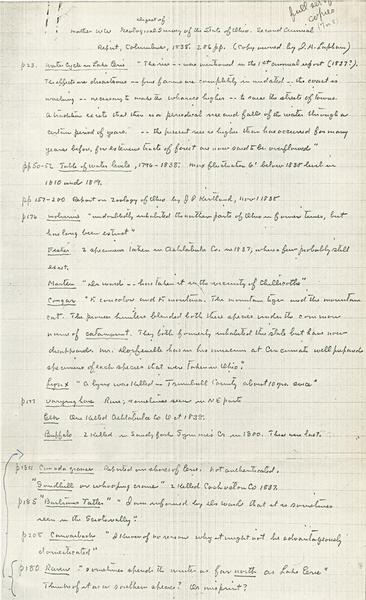 full set of
copies
(7 in 8)
digest of
Mather W.W. Geological Survey of the State of Ohio. Second Annual
Report, Columbus, 1838. 286 pp. (Copy owned by I.A. Lapham)
p23. Water Cycle in Lake Erie "The rise -- was mentioned in the 1st annual report (1837?).
The effects are disastrous -- fine farms are completely inundated -- the coast is
washing -- necessary to make the wharves higher -- to raise the streets of towns.
A tradition exists that there is a periodical rise and falls of the water through a
certain period of years. -- the present rise is higher than has occurred for many
years before, for extensive tracts of forest are now said to be overflowed"
pp50-52 Table of water levels, 1796-1838. Max fluctuation 6' below 1838 level in
1810 and 1819.
pp 157-200 Report on Zoology of Ohio by J P Kirtland, Nov 1 1838
p176 Wolverine "undoubtedly inhabited the northern parts of Ohio in former times, but
has long been extinct"
Fisher 2 specimens taken in Ashtabula Co. in 1837, where a few probably still
exist.
Marten "Dr Ward -- has taken it in the vicinity of Chillicothe"
Cougar "F. concolor and F. montana. The mountain tiger and the mountain
cat. The pioneer hunters blended both these species under the common
name of catamount. They both formerly inhabited this state but have now
disappeared. Mr. Dorfeuille has in his museum at Cincinnati well prepared
specimens of each species that were taken in Ohio."
Lynx "A lynx was killed in Trumbull County about 10 yrs. since"
p177 Varying hare Rare; sometimes seen in N E parts
Elk One killed Ashtabula Co O at 1838.
Buffalo 2 killed in Sandy fork Symmes Cr in 1800. These were last.
p184 Canada grouse Reported on shores of Erie. Not authenticated.
"Sandhill or whooping crane" 2 killed Coshocton Co. 1837.
p185 "Bartrams Tatler" "I am informed by Dr Ward that it is sometimes
seen in the Scioto valley."
p205 Canvasback "I know of no reason why it might not be advantageously
domesticated"
p180 Raven "sometimes spends the winter as far north as Lake Erie"
Thinks of it as a southern species? Or misprint?